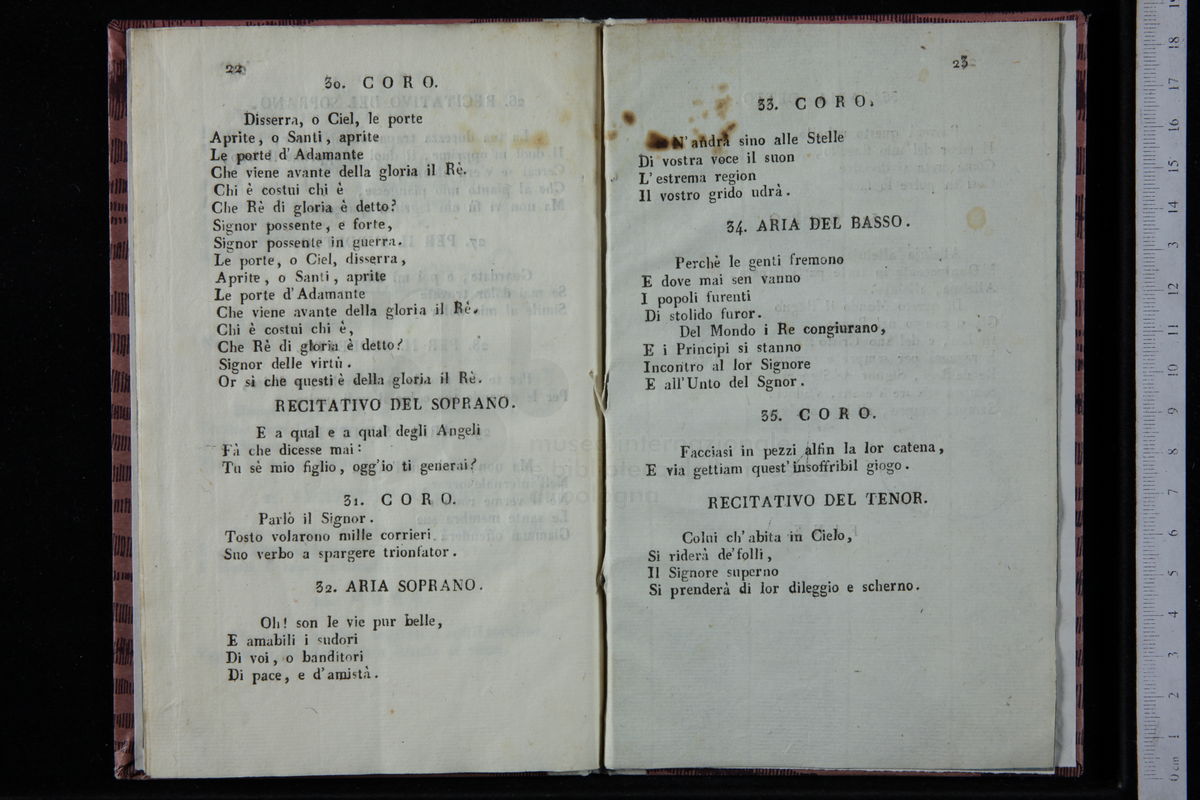 22
30. CORO.
Disserra, o Ciel, le porte
Aprite, o Santi, aprite
Le porte d'Adamante
Che viene avante della gloria il Rè.
Chi è costui chi è
Che Rè di gloria è detto?
Signor possente, e forte,
Signor possente in guerra.
Le porte, o Ciel, disserra,
Aprite, o Santi, aprite
Le porte d'Adamante
Che viene avante della gloria il Rè.
Chi è costui chi è,
Che Rè di gloria è detto?
Signor delle virtù.
Or si che questi è della gloria il Rè.
RECITATIVO DEL SOPRANO.
E a qual e a qual degli Angeli
Fà che dicesse mai:
Tu sè mio figlio, ogg'io ti generai?
31. CORO.
Parlò il Signor.
Tosto volarono mille corrieri
Suo verbo a spargere trionfator.
32. ARIA SOPRANO.
Oh! son le vie pur belle,
E amabili i sudori
Di voi, o banditori
Di pace, e d'amistà.
23
33. CORO.
N'andrà sino alle Stelle
Di vostra voce il suon
L'estrema region
Il vostro grido udrà.
34. ARIA DEL BASSO.
Perchè le genti fremono
E dove mai sen vanno
I popoli furenti
Di stolido furor.
Del Mondo i Re congiurano,
E i Principi si stanno
Incontro al lor Signore
E all'Unto del Sgnor.
35. CORO.
Facciasi in pezzi alfin la lor catena,
E via gettiam quest'insoffribil giogo.
RECITATIVO DEL TENOR.
Colui ch'abita in Cielo,
Si riderà de'folli,
Il Signore superno
Si prenderà di lor dileggio e scherno.
museo internazionale
e biblioteca
di bologna
0 cm 1 2 3 4 5 6 7 8 9 10 11 12 13 14 15 16 17 18 19